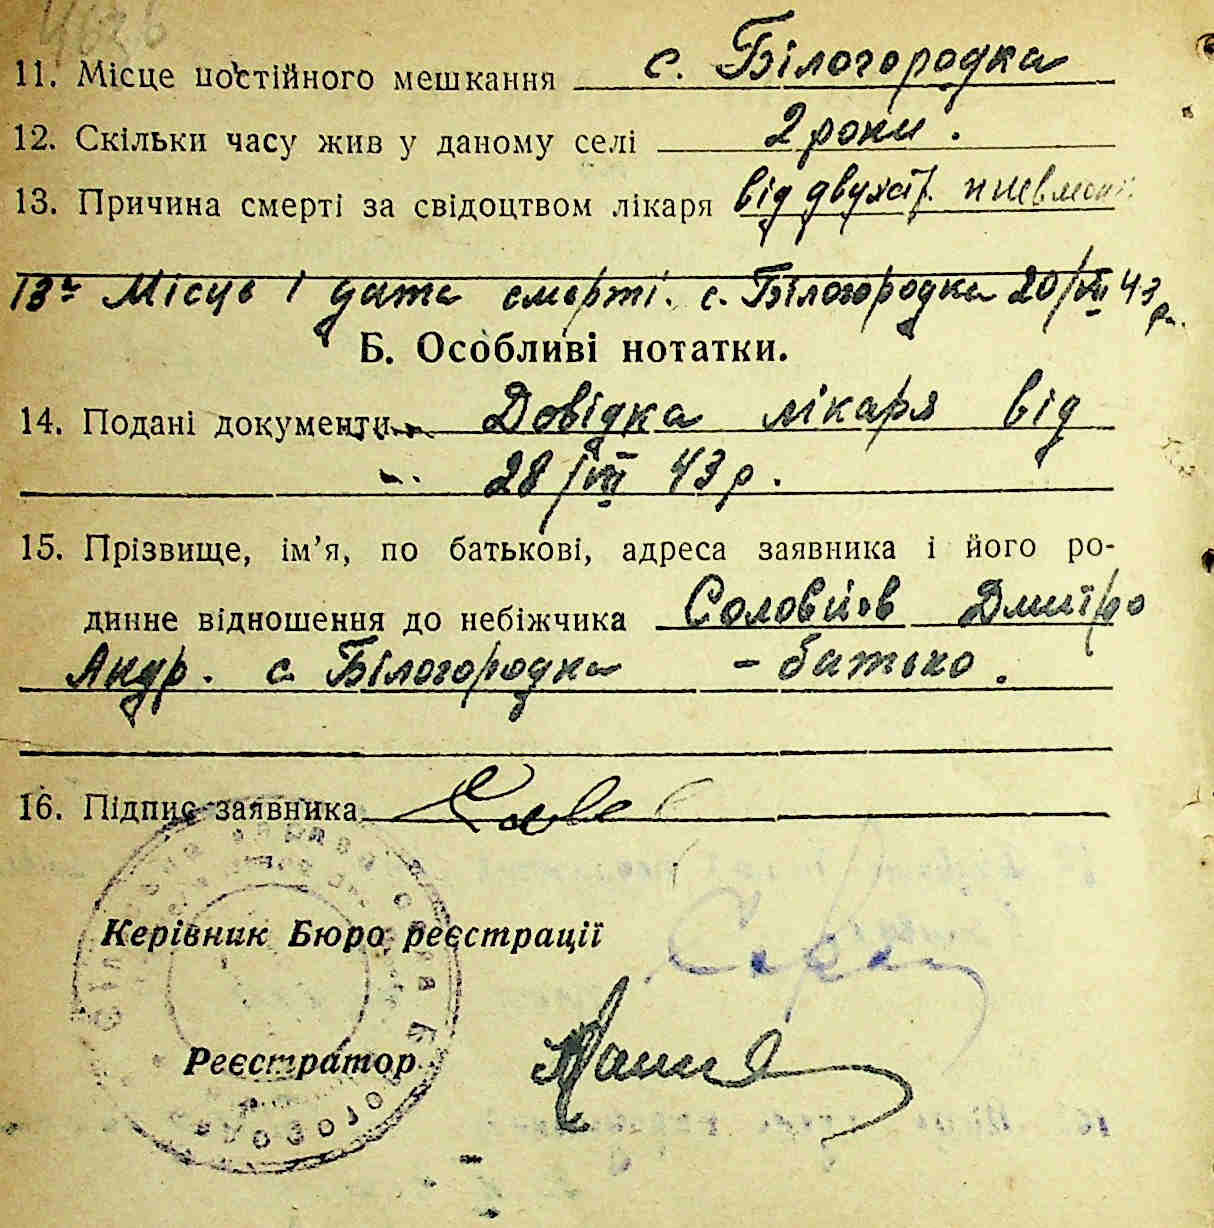 11. Місце постійного мешкання с. Білогородка
12. Скільки часу жив у даному селі 2 роки.
13. Причина смерті за свідоцтвом лікаря від двухст.
13а Місце і дата смерті. с. Білогородка 20/VII 43 р.
Б. Особливі нотатки.
14. Подані документи Довідка лікаря від
28/VII 43 р.
15. Прізвище, ім’я, по батькові, адреса заявника і його ро-
динне відношення до небіжчика Соловйов Дмитро
Андр. с. Білогородка - батько.
16. Підпис заявника
Керівник Бюро реєстрації
Реєстратор